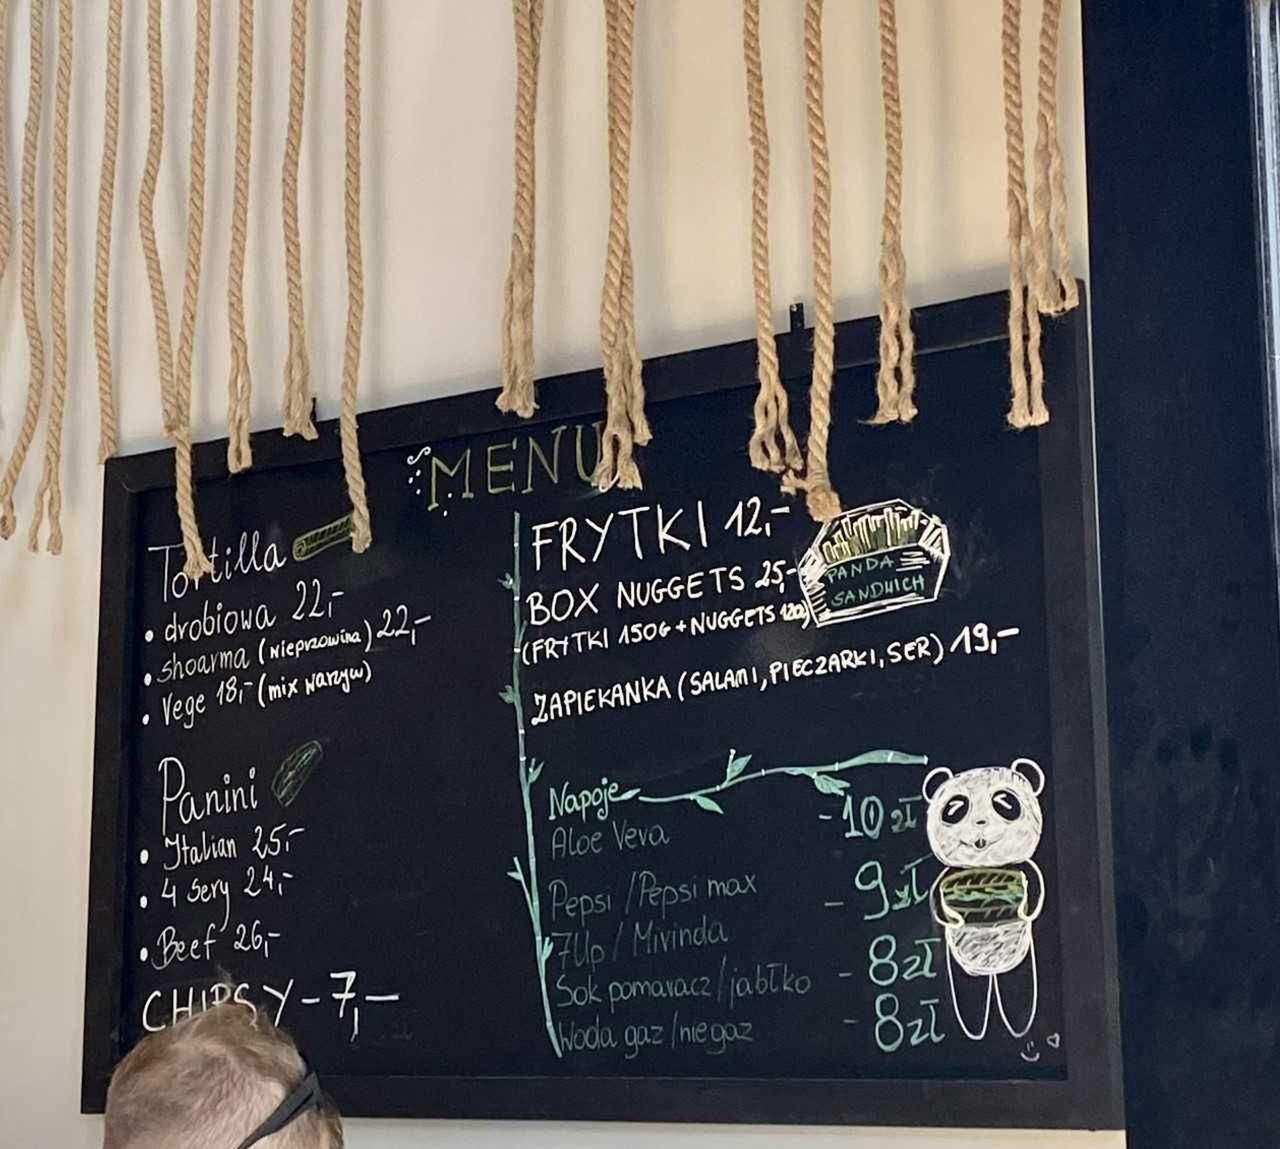 MENU
Tortilla
• drobiowa 22,-
• shoarma (wieprzowina) 22,-
• Vege 18,- (mix warzyw)
Panini
• Italian 25,-
• 4 sery 24,-
• Beef 26,-
CHIPSY - 7,-
FRYTKI 12,-
BOX NUGGETS 25,-
(FRYTKI 150G + NUGGETS
ZAPIEKANKA (SALAMI, PIECZARKI, SER) 19,-
PANDA
SANDWICH
Napoje
Aloe Vera - 10 zł
Pepsi / Pepsi max - 9 zł
7Up / Mirinda
Sok pomaracz/jabłko - 8 zł
Woda gaz/niegaz - 8 zł